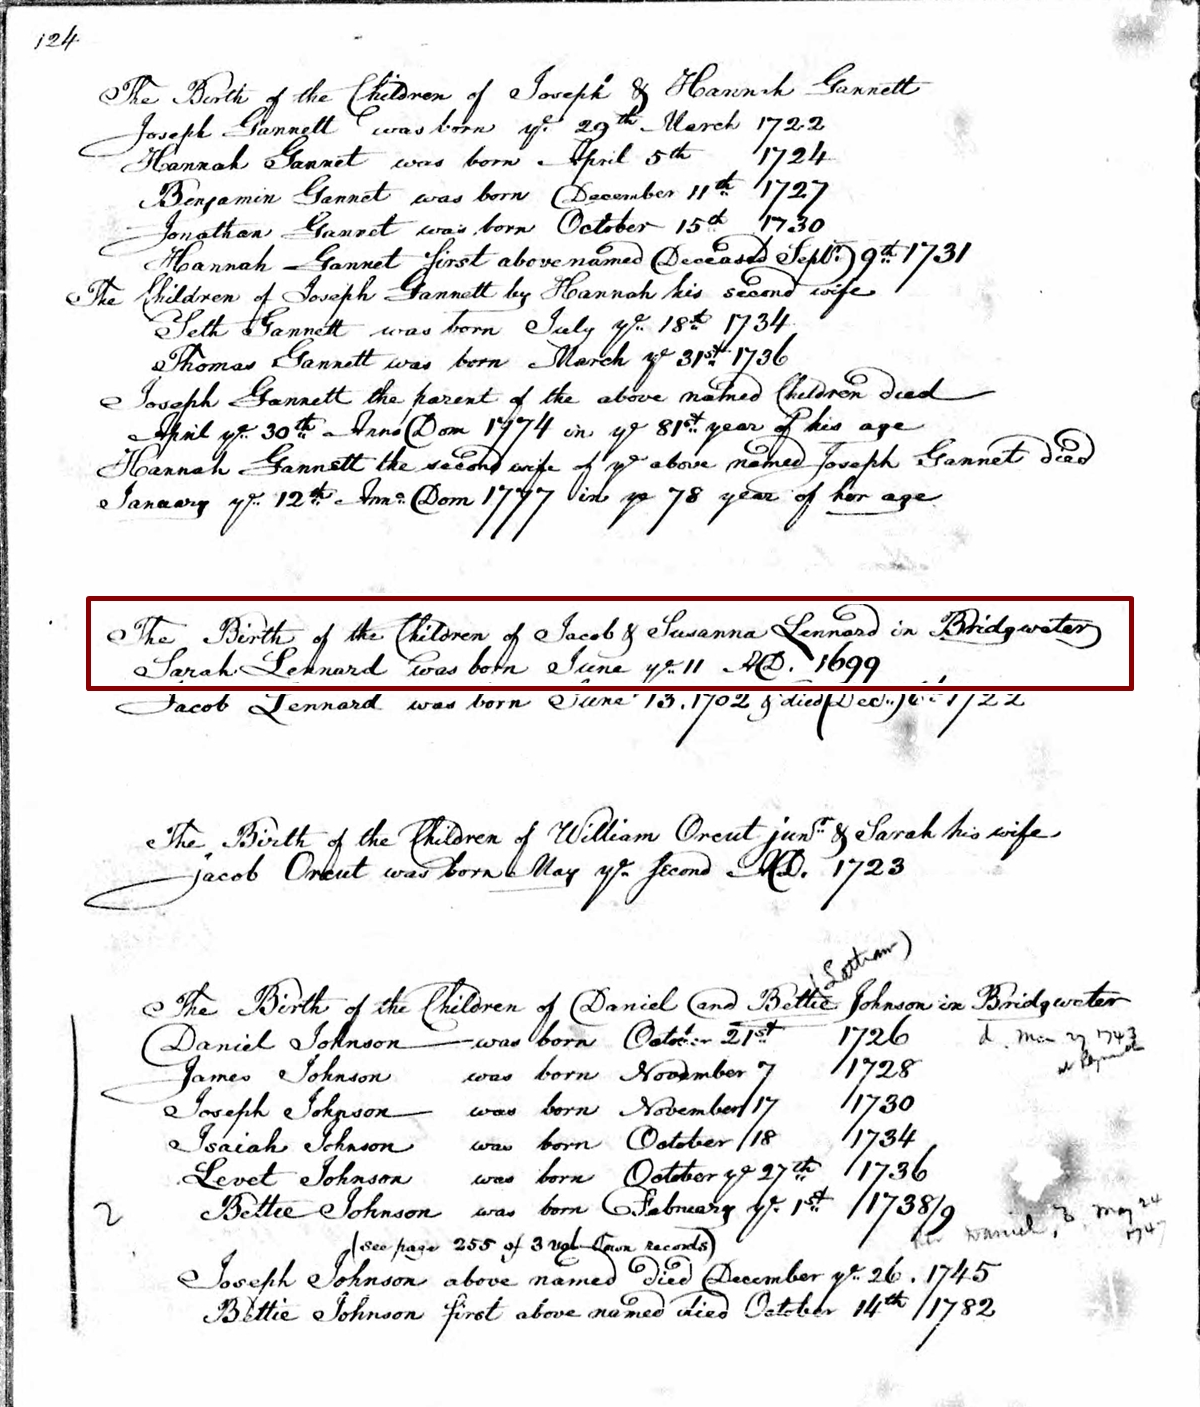 124
The Birth of the Children of Joseph & Hannah Gannett
Joseph Gannett was born ye 29th March 1722
Hannah Gannet was born April 5th 1724
Benjamin Gannet was born December 11th 1727
Jonathan Gannet was born October 15th 1730
Hannah Gannet first above named Deceased Septr 9th 1731
The Children of Joseph Gannett by Hannah his second wife
Seth Gannett was born July ye 18th 1734
Thomas Gannett was born March ye 31st 1736
Joseph Gannett the parent of the above named Children died
April ye 30th Anno Dom 1774 in ye 81st year of his age
Hannah Gannett the second wife of ye above named Joseph Gannet died
January ye 12th Anno Dom 1777 in ye 78 year of her age
The Birth of the Children of Jacob & Susanna Lennard in Bridgwater
Sarah Lennard was born June ye 11 AD. 1699
Jacob Lennard was born June 13. 1702 & died Decr 1722
The Birth of the Children of William Orcut junr & Sarah his wife
Jacob Orcut was born May ye second AD. 1723
(Latham)
The Birth of the Children of Daniel and Bettie Johnson in Bridgwater
Daniel Johnson was born October 21st 1726 d. Mar 27 1743
James Johnson was born November 7 1728
Joseph Johnson was born November 17 1730
Isaiah Johnson was born October 18 1734
Levet Johnson was born October ye 27th 1736
2 Bettie Johnson was born February ye 1st 1738/9
Daniel, May 24
(see page 255 of 3 vol town records)
Joseph Johnson above named died December ye 26. 1745
Bettie Johnson first above named died October 14th 1782